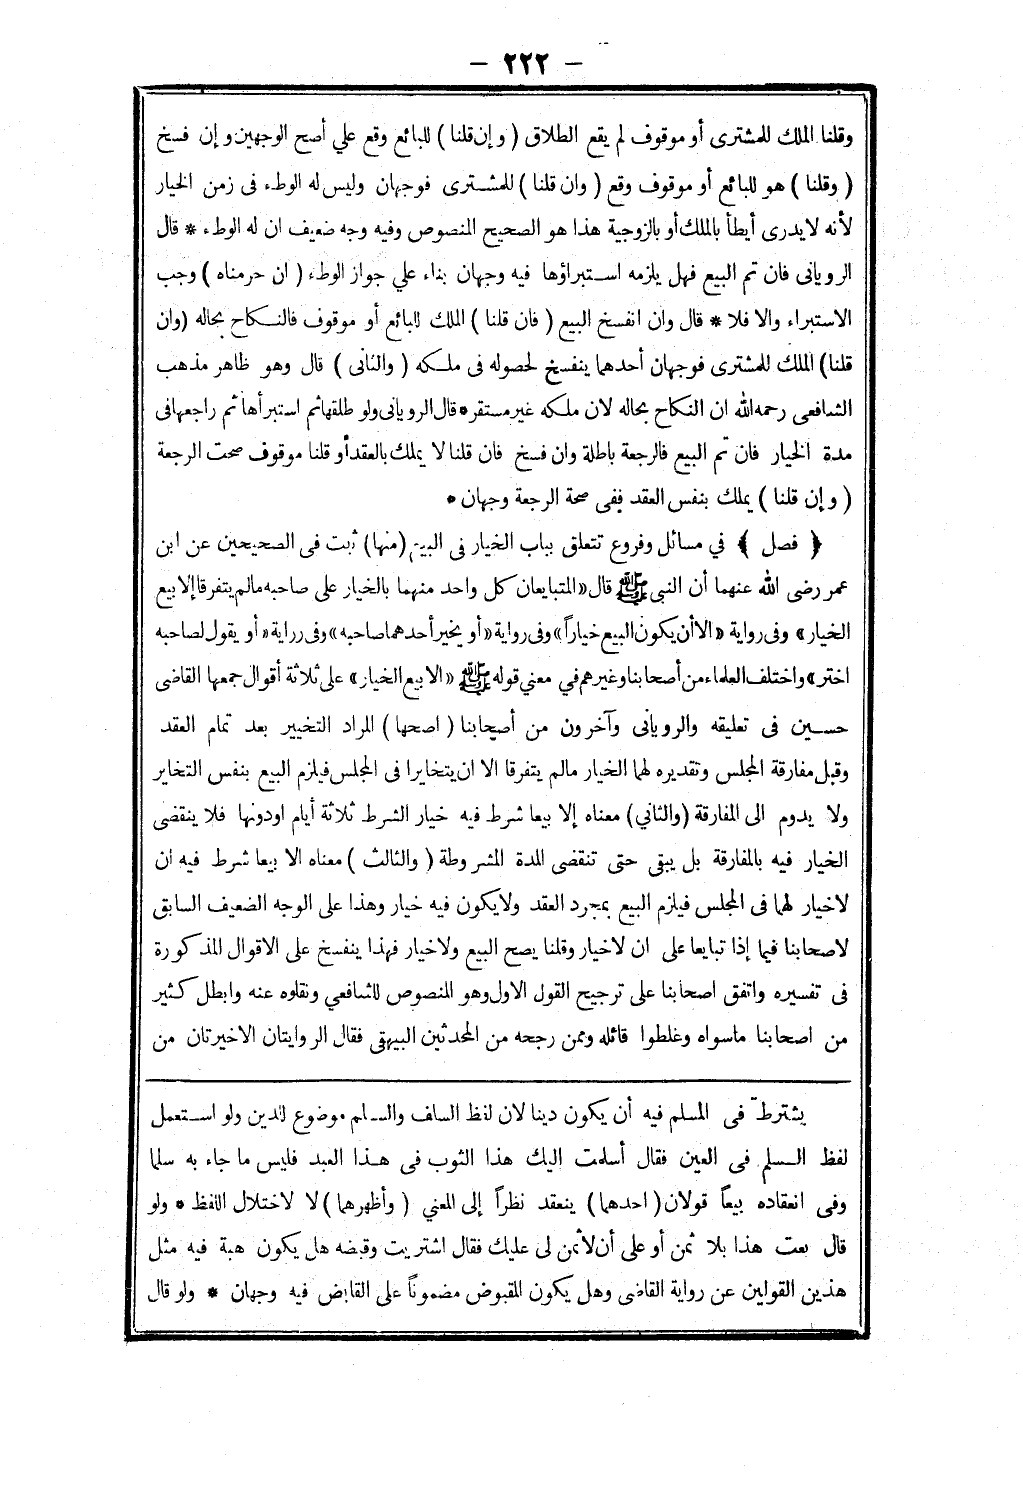 – ٢٢٢ –
وقلنا الملك للمشترى أو موقوف لم يقع الطلاق ( وإن قلنا ) للبائع وقع علي أصح الوجهين وإن فسخ
( وقلنا ) هو للبائع أو موقوف وقع ( وان قلنا ) للمشترى فوجهان وليس له الوطء فى زمن الخيار
لأنه لا يدرى أيطأ بالملك أو بالزوجية هذا هو الصحيح المنصوص وفيه وجه ضعيف ان له الوطء * قال
الرويانى فان تم البيع فهل يلزمه استبراؤها فيه وجهان بناء علي جواز الوطء ( ان حرمناه ) وجب
الاستبراء والا فلا * قال وان انفسخ البيع ( فان قلنا ) الملك للبائع أو موقوف فالنكاح بحاله (وان
قلنا) الملك للمشترى فوجهان أحدهما ينفسخ لحصوله فى ملكه ( والثانى ) قال وهو ظاهر مذهب
الشافعى رحمه الله ان النكاح بحاله لان ملكه غير مستقر * قال الرويانى ولو طلقها ثم استبرأها ثم راجعها فى
مدة الخيار فان تم البيع فالرجعة باطلة وان فسخ فان قلنا لا يملك بالعقد أو قلنا موقوف صحت الرجعة
( وإن قلنا ) يملك بنفس العقد ففى صحة الرجعة وجهان *
﴿ فصل ﴾ في مسائل وفروع تتعلق بباب الخيار فى البيع (منها) ثبت فى الصحيحين عن ابن
عمر رضى الله عنهما أن النبى ﷺ قال « المتبايعان كل واحد منهما بالخيار على صاحبه مالم يتفرقا إلا بيع
الخيار » وفى رواية « الا أن يكون البيع خياراً » وفى رواية « أو يخير أحدهما صاحبه » وفى رراية « أو يقول لصاحبه
اختر » واختلف العلماء من أصحابنا وغيرهم في معني قوله ﷺ « الا بيع الخيار » على ثلاثة أقوال جمعها القاضى
حسين فى تعليقه والرويانى وآخرون من أصحابنا ( اصحها ) المراد التخيير بعد تمام العقد
وقبل مفارقة المجلس وتقديره لهما الخيار مالم يتفرقا الا ان يتخايرا فى المجلس فيلزم البيع بنفس التخاير
ولا يدوم الى المفارقة (والثاني) معناه إلا بيعا شرط فيه خيار الشرط ثلاثة أيام اودونها فلا ينقضى
الخيار فيه بالمفارقة بل يبقى حتى تنقضى المدة المشروطة ( والثالث ) معناه الا بيعا شرط فيه ان
لا خيار لهما فى المجلس فيلزم البيع بمجرد العقد ولا يكون فيه خيار وهذا على الوجه الضعيف السابق
لاصحابنا فيما إذا تبايعا على ان لا خيار وقلنا يصح البيع ولا خيار فهذا ينفسخ على الاقوال المذكورة
فى تفسيره واتفق اصحابنا على ترجيح القول الاول وهو المنصوص للشافعي ونقلوه عنه وابطل كثير
من اصحابنا ماسواه وغلطوا قائله وممن رجحه من المحدثين البيهقى فقال الروايتان الاخيرتان من
يشترط فى المسلم فيه أن يكون دينا لان لفظ السلف والسلم موضوع للدين ولو استعمل
لفظ السلم فى العين فقال أسلمت اليك هذا الثوب فى هذا العبد فليس ما جاء به سلما
وفى انعقاده بيعاً قولان ( احدهما ) ينعقد نظراً إلى المعني ( وأظهرهما ) لا لاختلال اللفظ * ولو
قال بعت هذا بلا ثمن أو على أن لا ثمن لى عليك فقال اشتريت وقبضه هل يكون هبة فيه مثل
هذين القولين عن رواية القاضى وهل يكون المقبوض مضموناً على القابض فيه وجهان * ولو قال